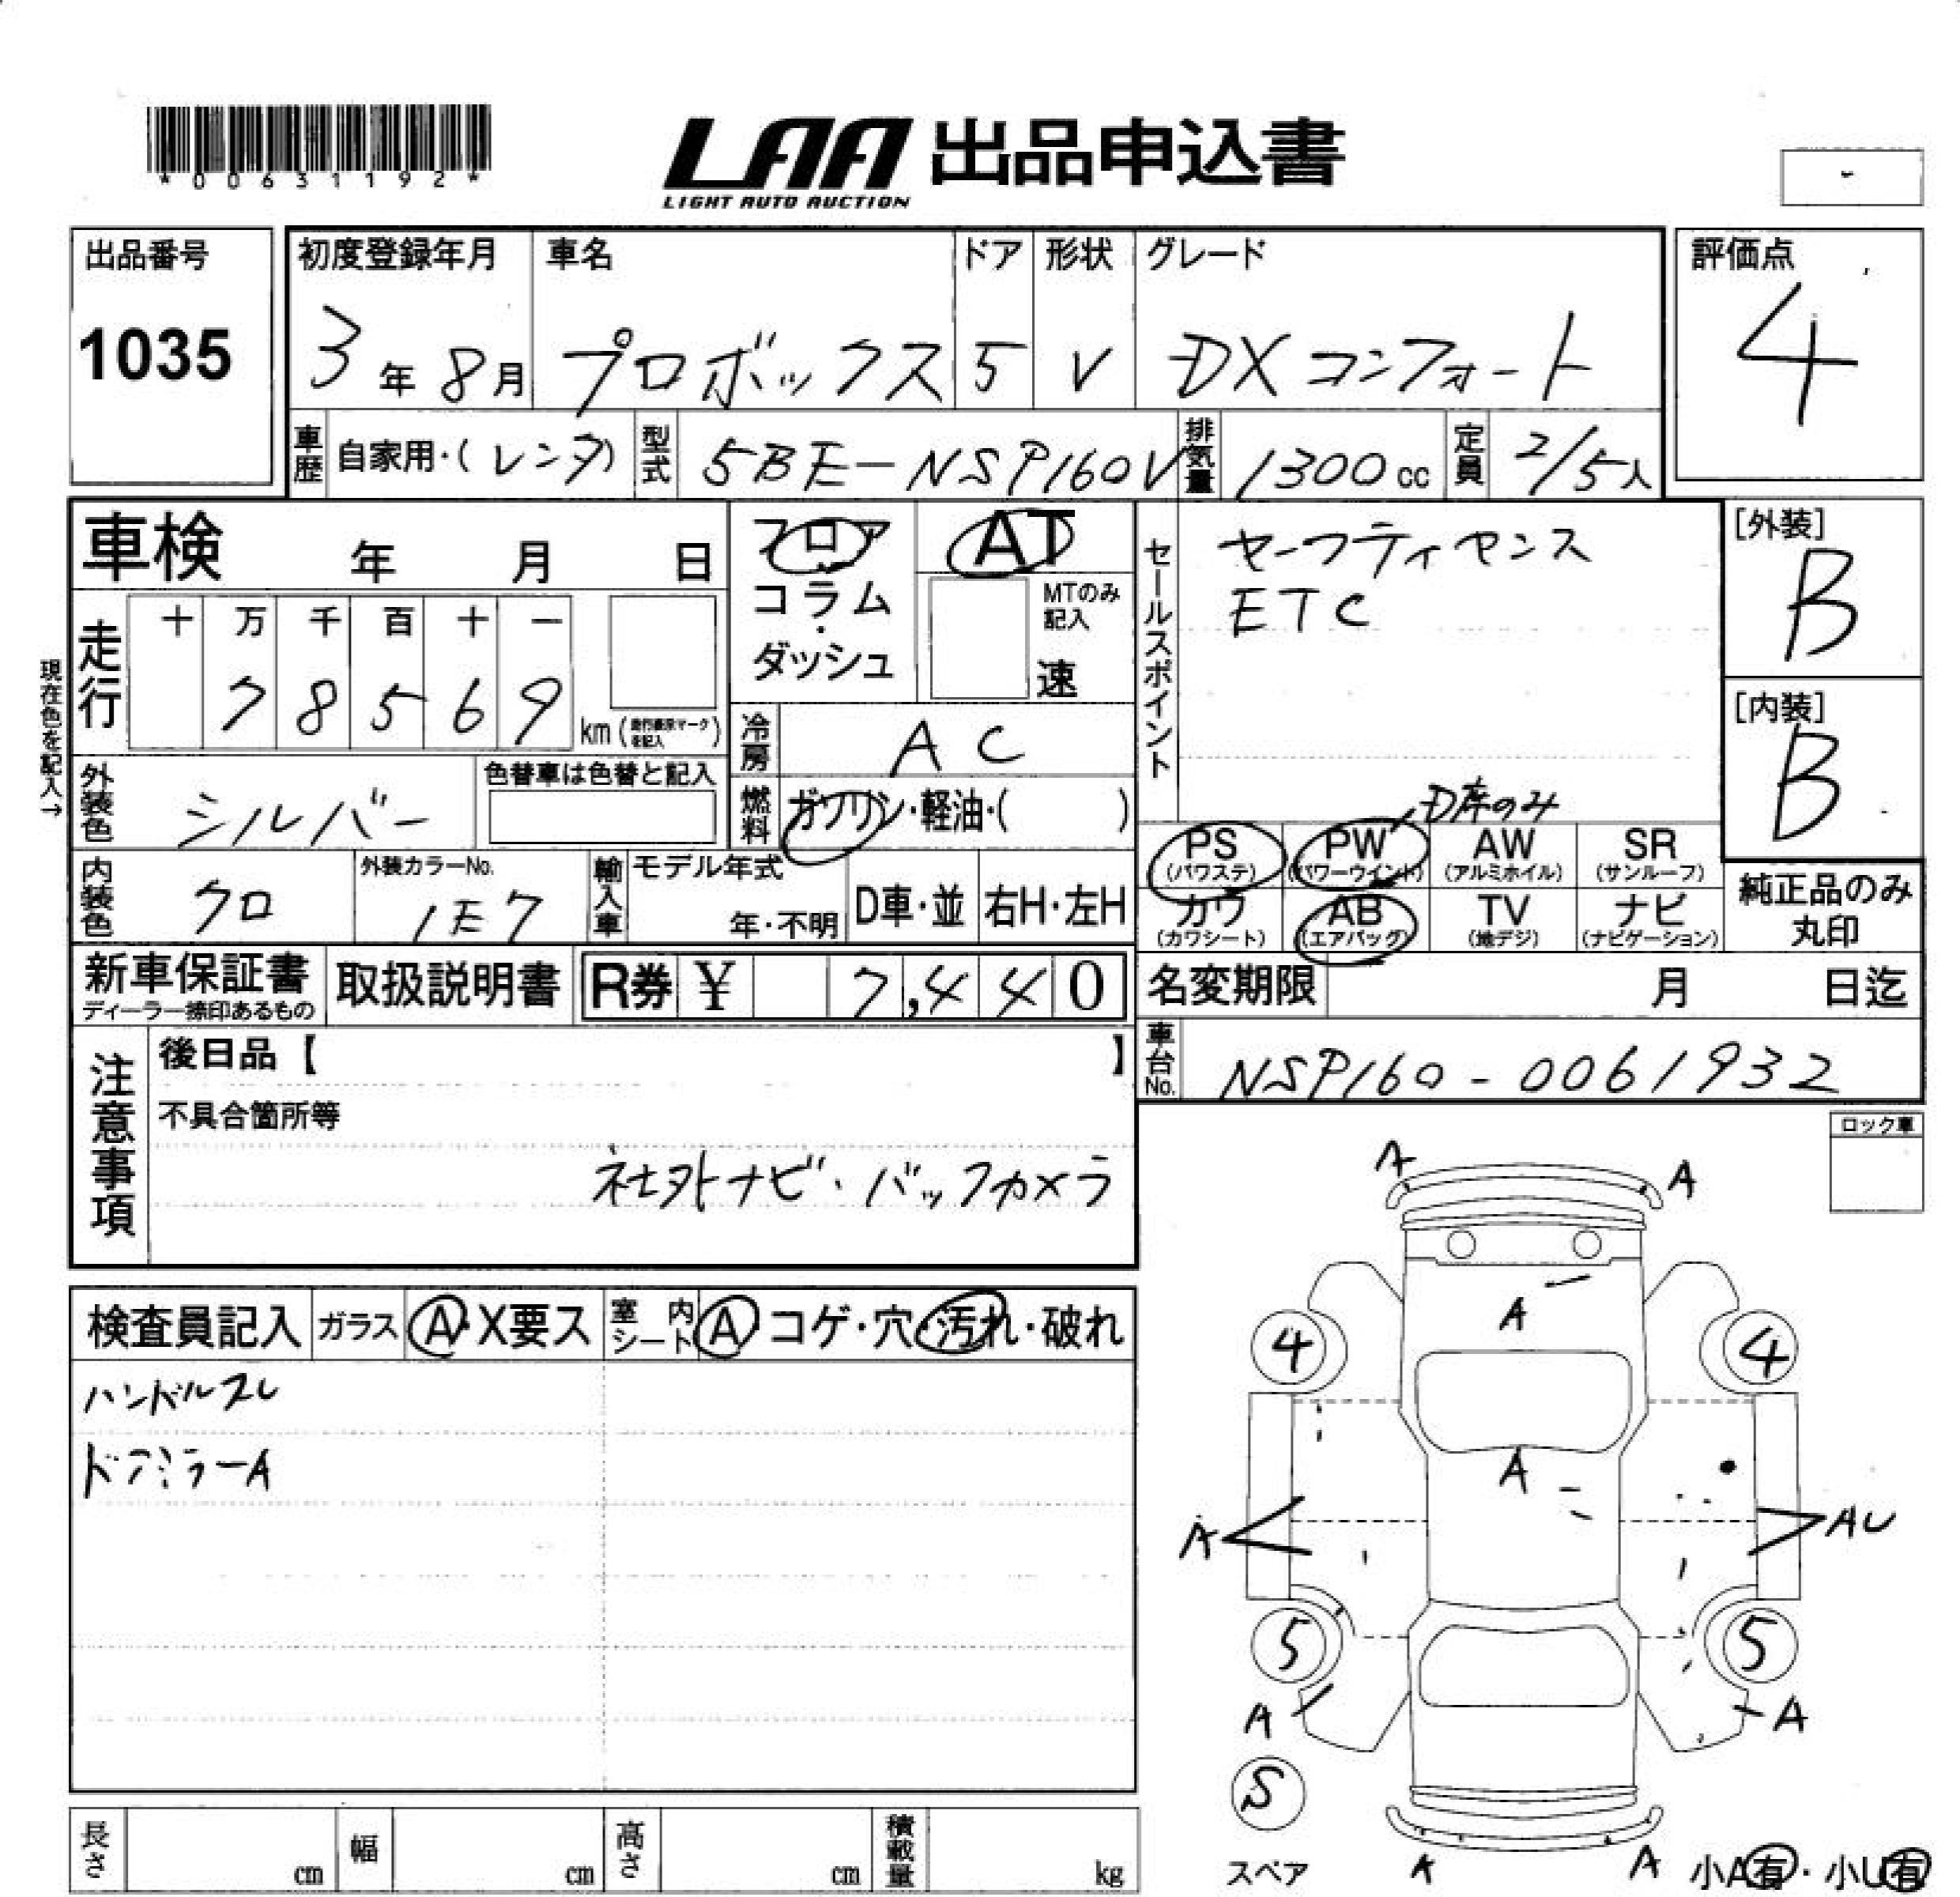 *00631192*
LAA 出品申込書
LIGHT AUTO AUCTION
-
出品番号
1035
初度登録年月
3年8月
車名
プロボックス
ドア
5
形状
V
グレード
DXコンフォート
評価点
4
車歴
自家用・(レンタ)
型式
5BE-NSP160V
排気量
1300cc
定員
2/5人
車検 年 月 日
フロア
コラム
・
ダッシュ
AT
MTのみ
記入
速
セールスポイント
セーフティセンス
ETC
[外装]
B
[内装]
B
現在色を記入→
走行
十 万 千 百 十 一
7 8 5 6 9
km(走行表示マークを記入)
冷房
AC
外装色
シルバー
色替車は色替と記入
燃料
ガソリン・軽油・( )
D席のみ
PS
(パワステ)
PW
(パワーウインド)
AW
(アルミホイル)
SR
(サンルーフ)
内装色
クロ
外装カラーNo.
1E7
輸入車
モデル年式
年・不明
D車・並
右H・左H
カワ
(カワシート)
AB
(エアバッグ)
TV
(地デジ)
ナビ
(ナビゲーション)
純正品のみ
丸印
新車保証書
ディーラー捺印あるもの
取扱説明書
R券 ¥ 7,440
名変期限 月 日迄
車台No.
NSP160-0061932
注意事項
後日品【 】
不具合箇所等
社外ナビ・バックカメラ
ロック車
検査員記入
ガラス
A・X要ス
室内
シート
A コゲ・穴・汚れ・破れ
ハンドルスレ
ドアミラーA
A
A
A
4
4
A
A
AU
5
5
A
A
S
スペア
A
A
小A有・小U有
長さ cm
幅 cm
高さ cm
積載量 kg